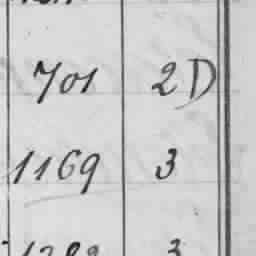 701 2D
1169 3
3